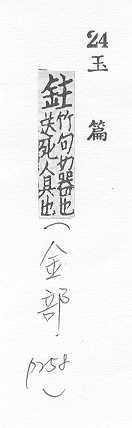 24
玉篇
鉒
竹句切器也
送死人具也
(金部. p258)